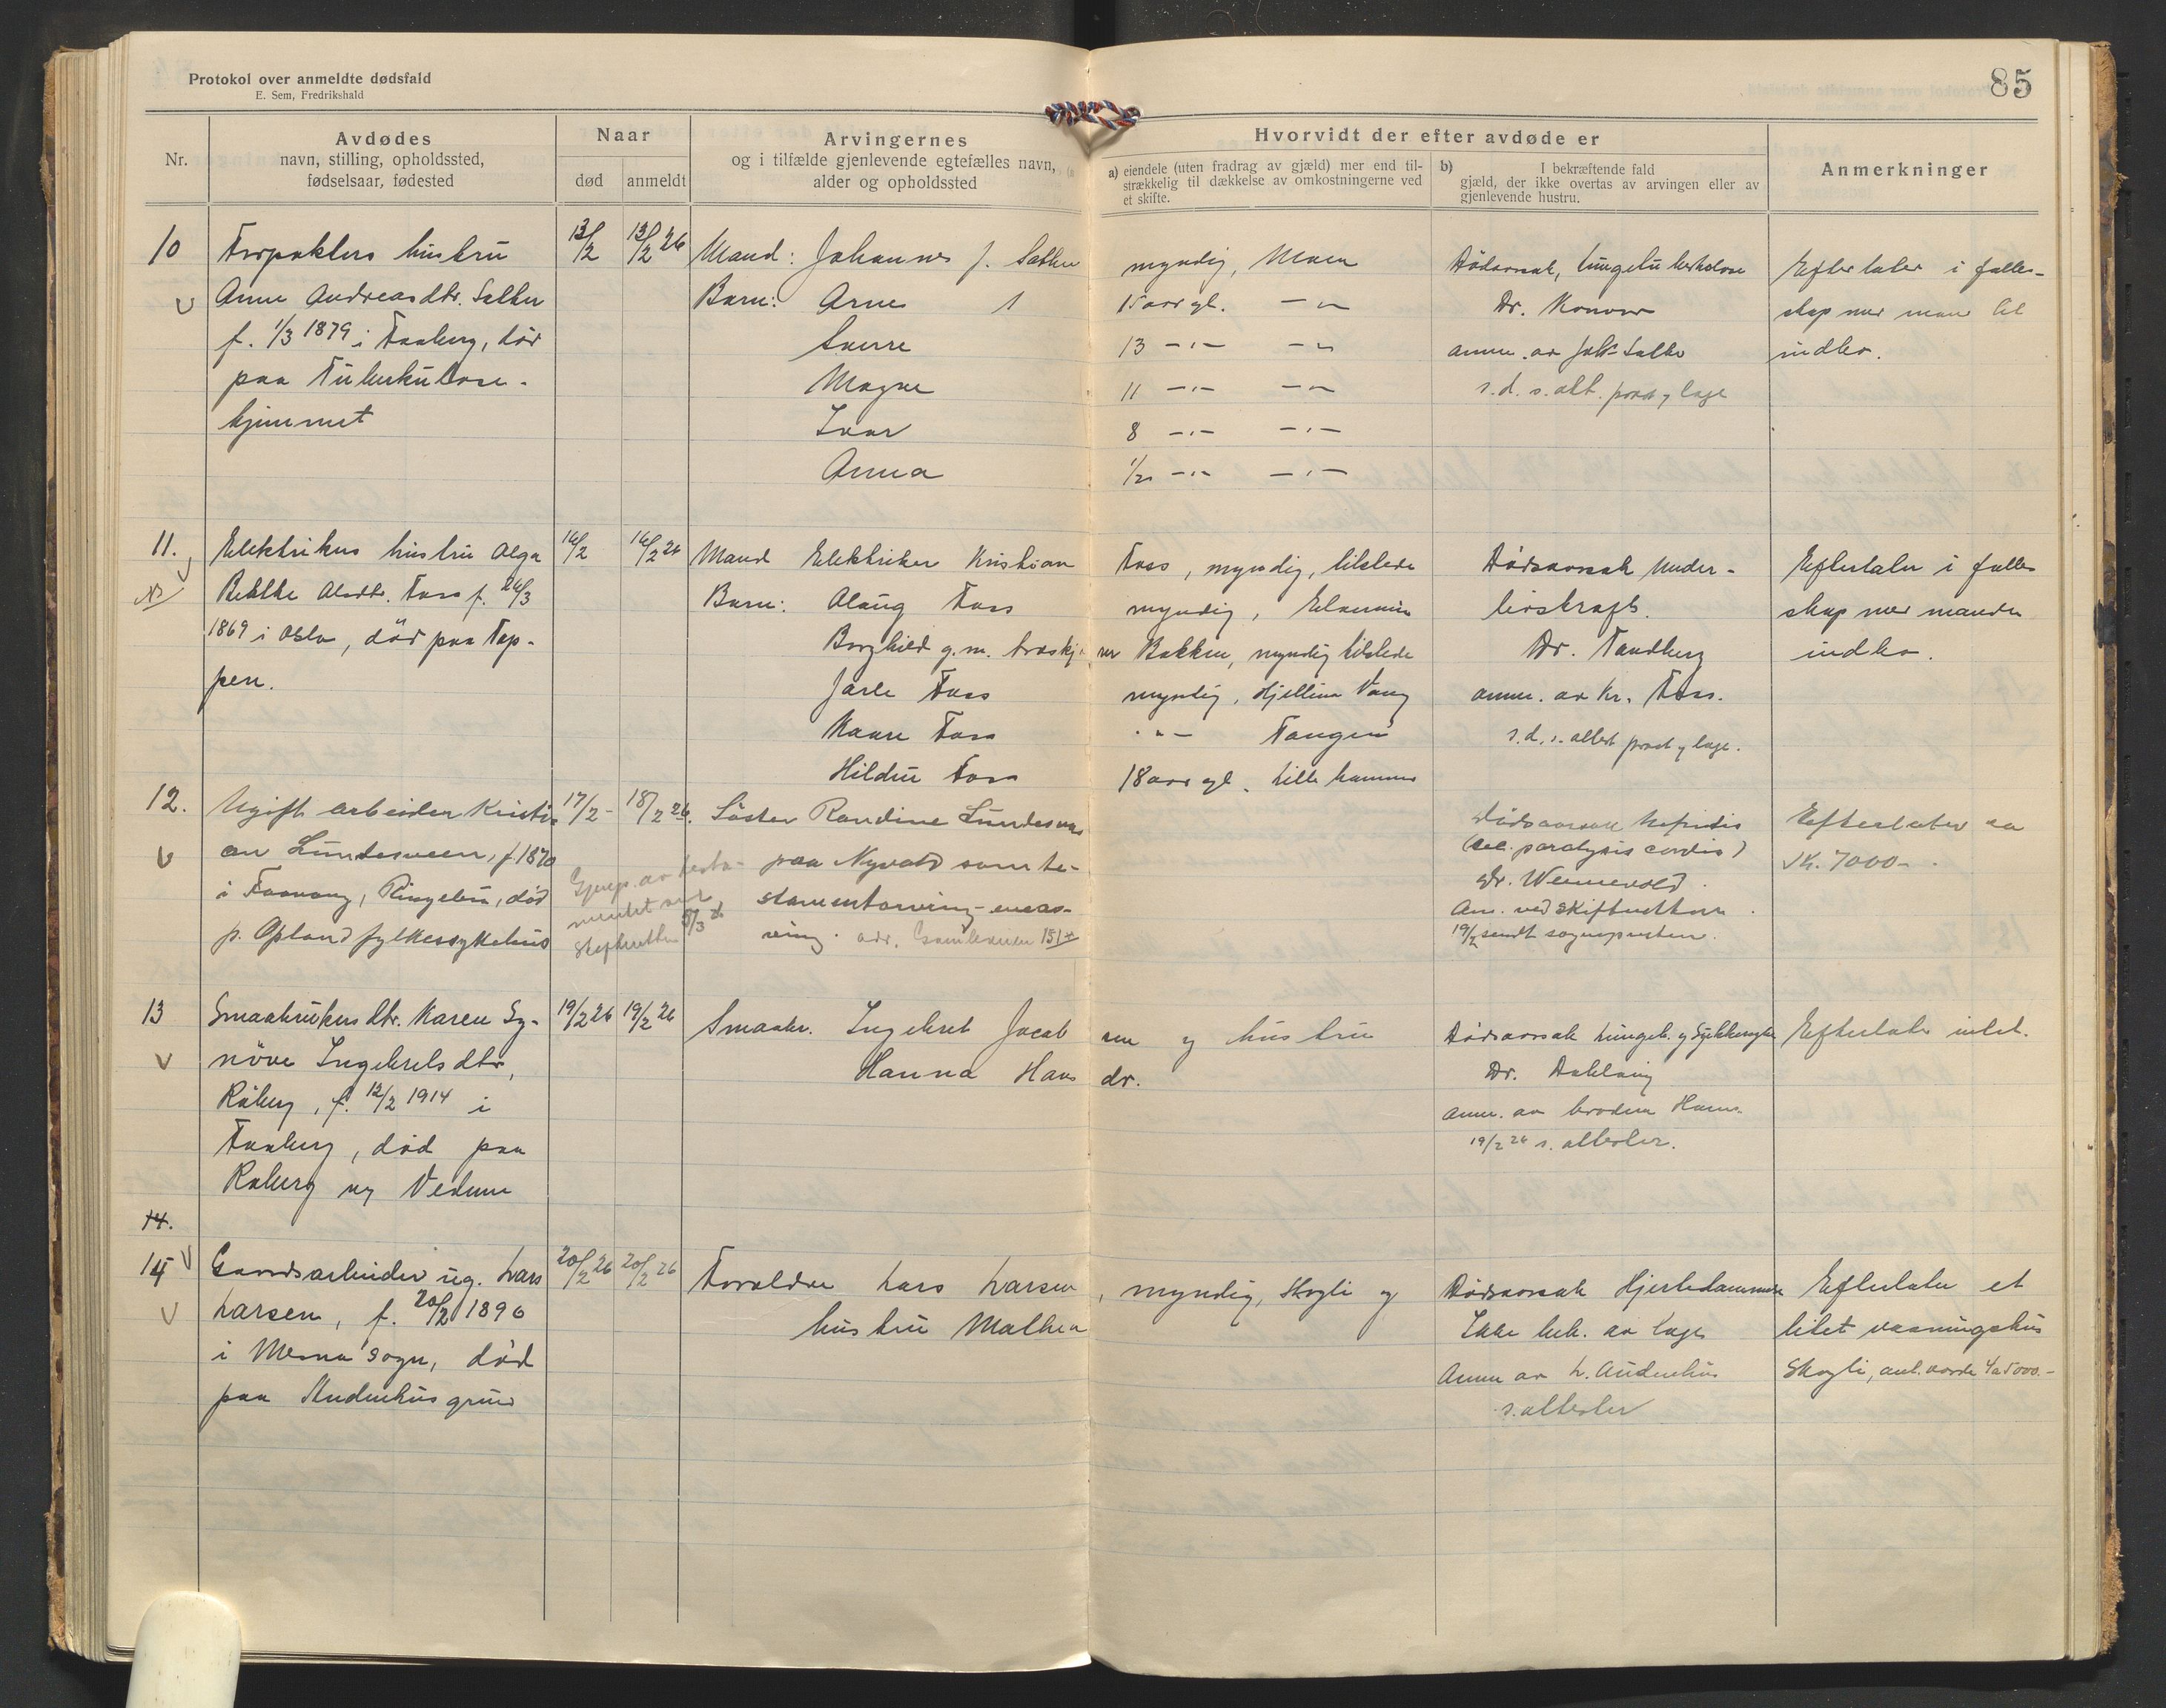 Protokol over anmeldte dødsfald
E. Sem, Fredrikshald
85
Nr.
Avdødes
navn, stilling, opholdssted,
fødselsaar, fødested
Naar
død
anmeldt
Arvingernes
og i tilfælde gjenlevende egtefælles navn,
alder og opholdssted
Hvorvidt der efter avdøde er
a) eiendele (uten fradrag av gjæld) mer end til-
strækkelig til dækkelse av omkostningerne ved
et skifte.
b) I bekræftende fald
gjæld, der ikke overtas av arvingen eller av
gjenlevende hustru.
Anmerkninger
10
Forpakters hustru
Anne Andreasdtr. Sæther
f. 1/3 1879 i Faaberg, død
paa Tuberkulose-
hjemmet
13/2
13/2 26
Mand: Johannes J. Sæther myndig, Moen
Barn: Arne 15 aar gl. -"-
Sverre 13 -"- -"-
Magne 11 -"- -"-
Ivar 8 -"- -"-
Anna -"- -"-
Dødsaarsak, lungetuberkulose
Dr. Konow
anm. av Johs Sæther
s.d. s. att. prest og læge
Efterlater i fælles-
skap med mand litt
indbo.
11.
Elektrikers hustru Olga
Foss f. 24/3
1869 i Oslo, død paa Top-
pen.
16/2
16/2 26
Mand Elektriker Kristian Foss, myndig, tilstede
Barn: Aslaug Foss myndig, Elverum
Borghild g.m. Bakken, myndig tilstede
Jarle Foss myndig, Hjellum Vang
Kaare Foss -"- Tangen
Hildur Foss 18 aar gl. Lillehammer
Dødsaarsak Under-
livskræft.
Dr. Tandberg
anm. av Kr. Foss.
s.d. s. attest prest og læge.
Efterlater i fælles
skap med manden
indbo.
12.
Ugift arbeider Kristi-
an Lundesveen, f. 1870
i Faavang, Ringebu, død
p. Opland fylkessykehus
17/2-
18/2 26.
Gjenp. av testa-
mentet
skifteretten 5/3
Søster Randine Lundesveen
paa Nyvold som te-
stamentarving - enear-
ving. adr. 151
Dødsaarsak Nefritis
(sec. paralysis cordis)
Dr. Wennevold.
Anm. ved skifteretten.
19/2 sendt sognepresten.
Efterlater ca
Kr. 7000-.
13
Smaabrukers dtr. Karen Sy-
nøve Ingebretsdtr,
Råberg, f. 12/2 1914 i
Faaberg, død paa
Raberg ny Vedum
19/2 26
19/2 26
Smaabr. Ingebret Jacobsen og hustru
Hanna Hansdr.
Dødsaarsak lungeb. og Sukkersyke
Dr.
anm. av broderen Hans.
19/2 26 s. attester.
Efterlater intet.
14.
14
Gaardsarbeider ug. Lars
Larsen, f. 20/2 1890
i Mesna sogn, død
paa Audenhusgrind
20/2 26
20/2 26
Forældre Lars Larsen, myndig, Skogli og
hustru Mathea
Dødsaarsak Hjertelammelse
Ikke beh. av læge
Anm av L. Audenhus
s. attester
Efterlater et
litet vaaningshus
Skogli, ant. værdi 4 a 5000.-